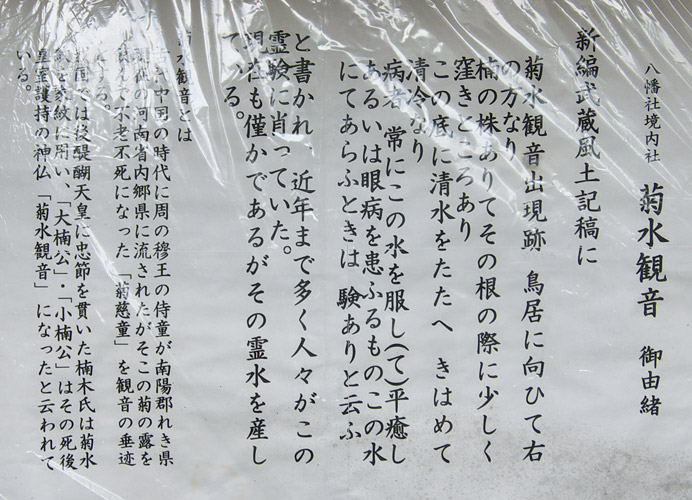 八幡社境内社 菊水観音 御由緒
新編武蔵風土記稿に
菊水観音出現跡 鳥居に向ひて右
の方なり
楠の株ありてその根の際に少しく
窪きところあり
この底に清水をたたへ きはめて
清冷なり
病者 常にこの水を服し(て)平癒し
あるいは眼病を患ふるものこの水
にてあらふときは 験ありと云ふ
と書かれ、近年まで多く人々がこの
霊験に肖っていた。
現在も僅かであるがその霊水を産し
ている。
菊水観音とは
中国の時代に周の穆王の侍童が南陽郡れき県
現代の河南省内郷県に流されたがそこの菊の露を
飲んで不老不死になった「菊慈童」を観音の垂迹
とする。
我国では後醍醐天皇に忠節を貫いた楠木氏は菊水
紋を家紋に用い、「大楠公」・「小楠公」はその死後
皇室護持の神仏「菊水観音」になったと云われて
いる。